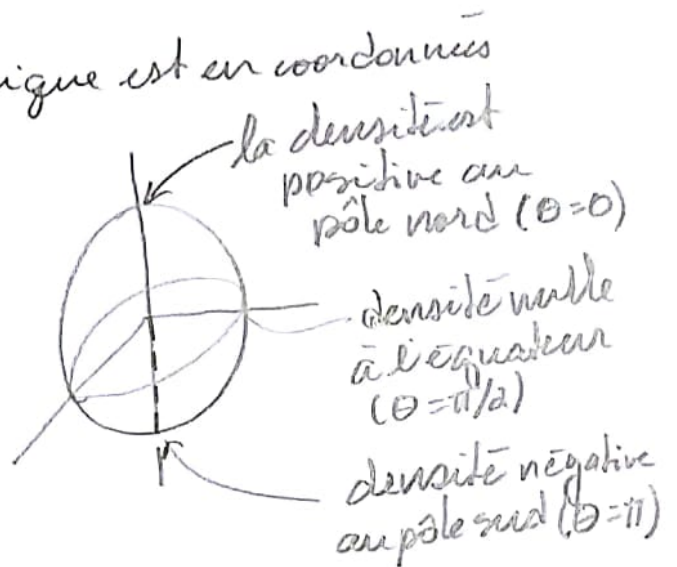 ique est en coordonnées
la densité est
positive au
pôle nord (θ=0)
densité nulle
à l'équateur
(θ=π/2)
densité négative
au pôle sud (θ=π)